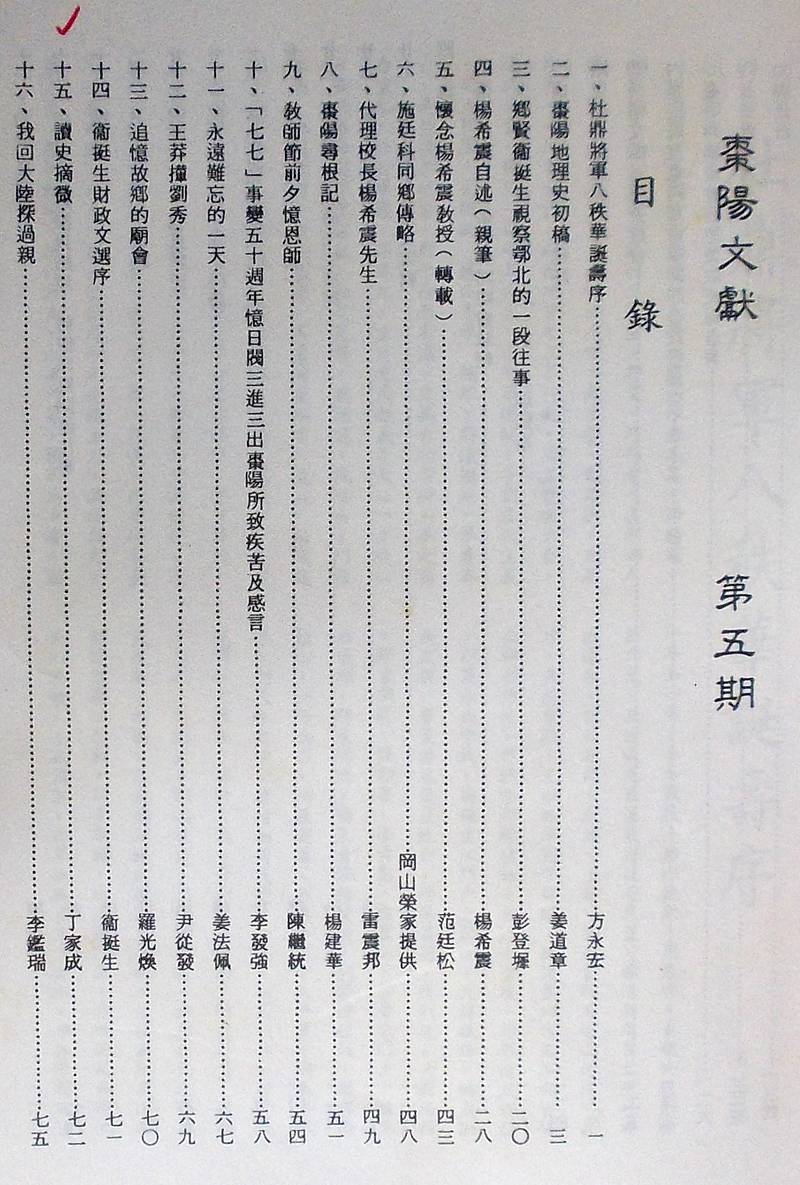 棗陽文獻　第五期
目錄
一、杜鼎將軍八秩華誕壽序……方永宏……一
二、棗陽地理史初稿……姜道章……三
三、鄉賢衞挺生視察鄂北的一段往事……彭登墀……二〇
四、楊希震自述（親筆）……楊希震……二八
五、懷念楊希震教授（轉載）……范廷松……四三
六、施廷科同鄉傳略……岡山榮家提供……四八
七、代理校長楊希震先生……雷震邦……四九
八、棗陽尋根記……楊建華……五一
九、教師節前夕憶恩師……陳繼統……五四
十、「七七」事變五十週年憶日閥三進三出棗陽所致疾苦及感言……李發強……五八
十一、永遠難忘的一天……姜法佩……六七
十二、王莽攆劉秀……尹從發……六九
十三、追憶故鄉的廟會……羅光煥……七〇
十四、衞挺生財政文選序……衞挺生……七一
十五、讀史摘微……丁家成……七二
十六、我回大陸探過親……李鑑瑞……七五